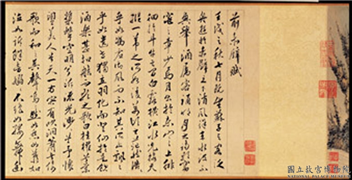 前赤壁賦
壬戌之秋七月既望蘇子與客泛
舟遊於赤壁之下清風徐來水波不
興舉酒屬客誦明月之詩歌窈
窕之章少焉月出於東山之上徘
徊於斗牛之間白露橫江水光接天
縱一葦之所如凌萬頃之茫然浩浩
乎如馮虛御風而不知其所止飄飄
乎如遺世獨立羽化而登仙於是飲
酒樂甚扣舷而歌之歌曰桂棹兮
蘭槳擊空明兮泝流光渺渺兮予懷
望美人兮天一方客有吹洞簫者倚
歌而和之其聲嗚嗚然如怨如慕如
泣如訴餘音嫋嫋不絕如縷舞幽
國立故宮博物院